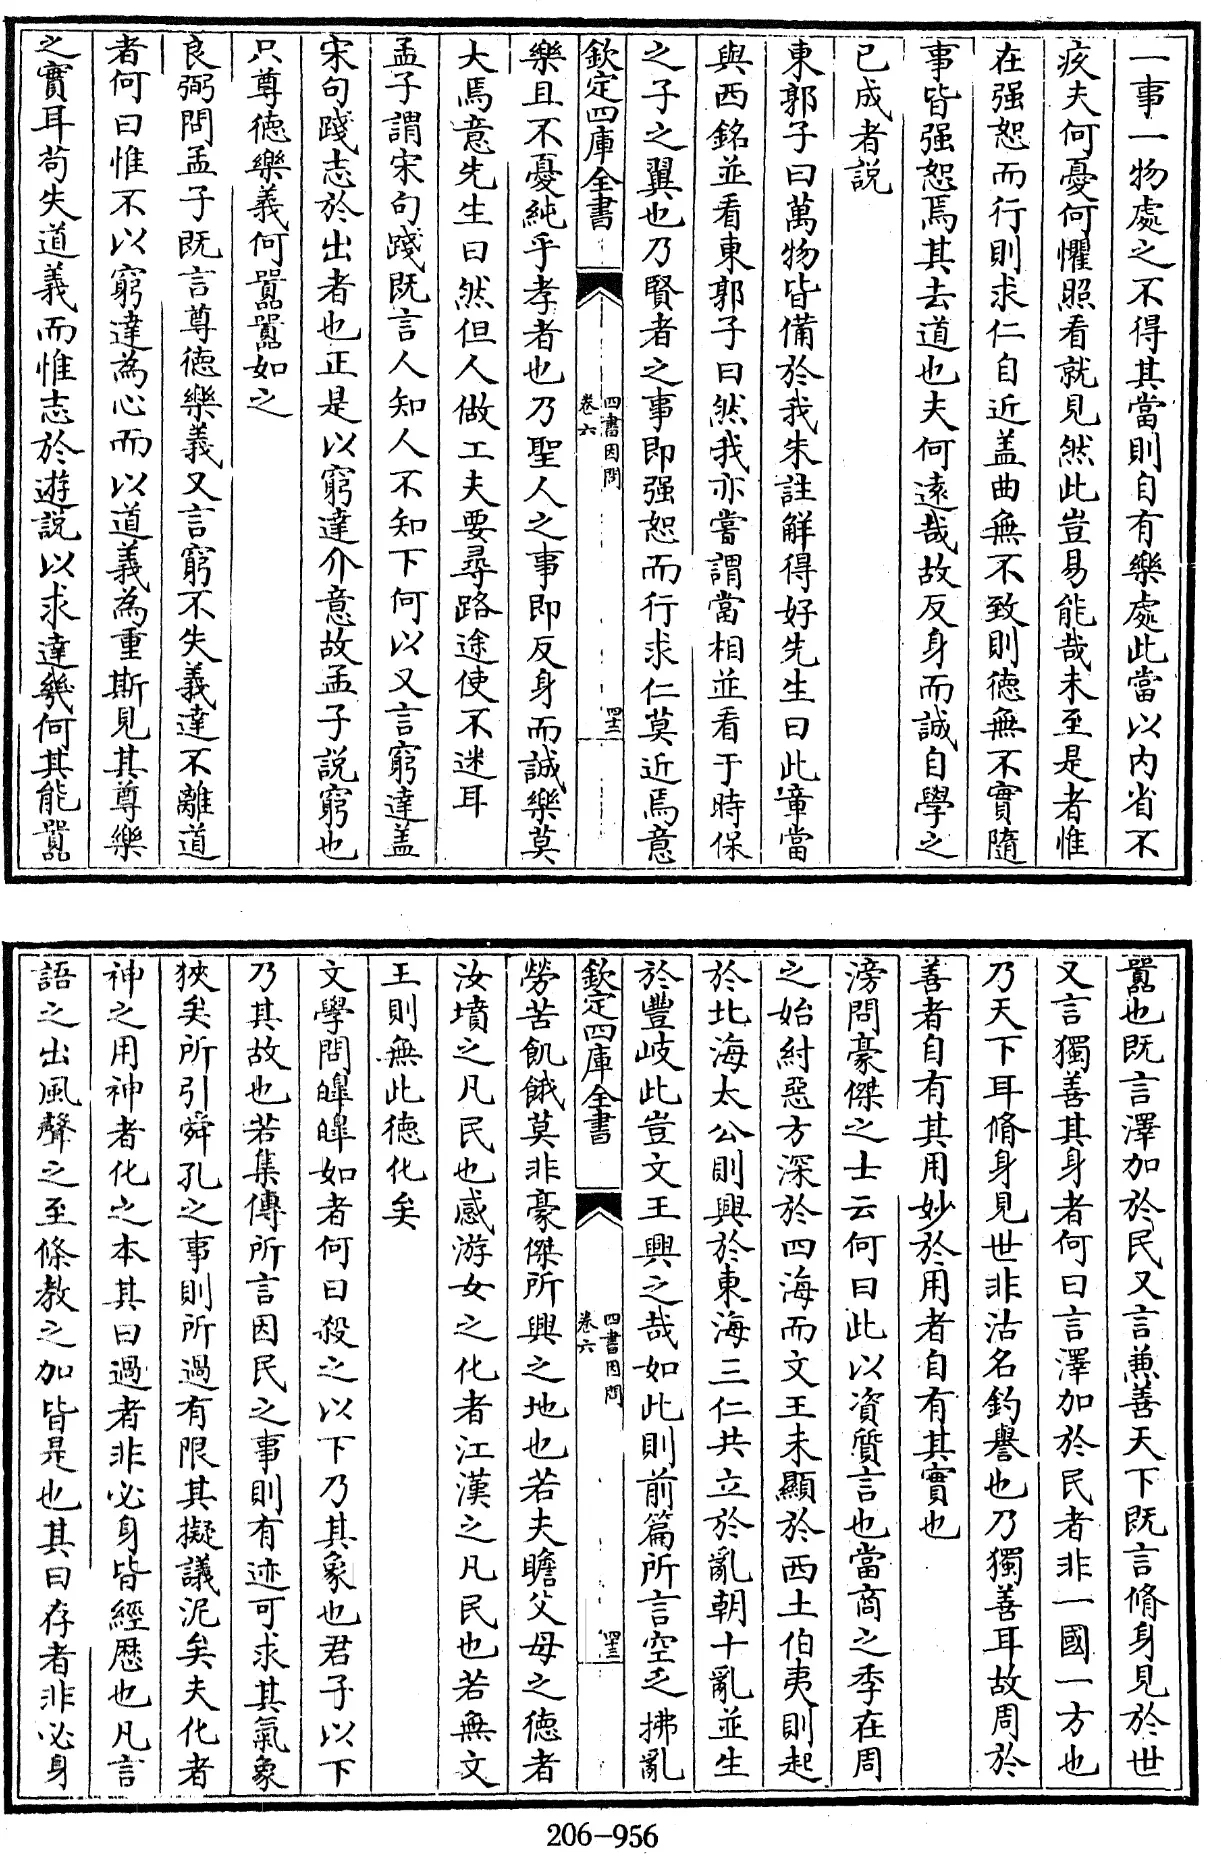 一事一物處之不得其當則自有樂處此當以内省不
疚夫何憂何懼照看就見然此豈易能哉未至是者惟
在强恕而行則求仁自近盖曲無不致則德無不實隨
事皆强恕焉其去道也夫何遠哉故反身而誠自學之
已成者説
東郭子曰萬物皆備於我朱註解得好先生曰此章當
與西銘並看東郭子曰然我亦嘗謂當相並看于時保
之子之翼也乃賢者之事即强恕而行求仁莫近焉意
欽定四庫全書
四書因問
卷六
四十二
樂且不憂純乎孝者也乃聖人之事即反身而誠樂莫
大焉意先生曰然但人做工夫要尋路途使不迷耳
孟子謂宋句踐既言人知人不知下何以又言窮達盖
宋句踐志於出者也正是以窮達介意故孟子説窮也
只尊德樂義何囂囂如之
良弼問孟子既言尊德樂義又言窮不失義達不離道
者何曰惟不以窮達為心而以道義為重斯見其尊樂
之實耳苟失道義而惟志於遊説以求達幾何其能囂
囂也既言澤加於民又言兼善天下既言脩身見於世
又言獨善其身者何曰言澤加於民者非一國一方也
乃天下耳脩身見世非沽名釣譽也乃獨善耳故周於
善者自有其用妙於用者自有其實也
滂問豪傑之士云何曰此以資質言也當商之季在周
之始紂惡方深於四海而文王未顯於西土伯夷則起
於北海太公則興於東海三仁共立於亂朝十亂並生
於豐岐此豈文王興之哉如此則前篇所言空乏拂亂
欽定四庫全書
四書因問
卷六
四十三
勞苦飢餓莫非豪傑所興之地也若夫瞻父母之德者
汝墳之凡民也感游女之化者江漢之凡民也若無文
王則無此德化矣
文學問皥皥如者何曰殺之以下乃其象也君子以下
乃其故也若集傳所言因民之事則有迹可求其氣象
狹矣所引舜孔之事則所過有限其擬議泥矣夫化者
神之用神者化之本其曰過者非必身皆經歴也凡言
語之出風聲之至條教之加皆是也其曰存者非必身
206-956